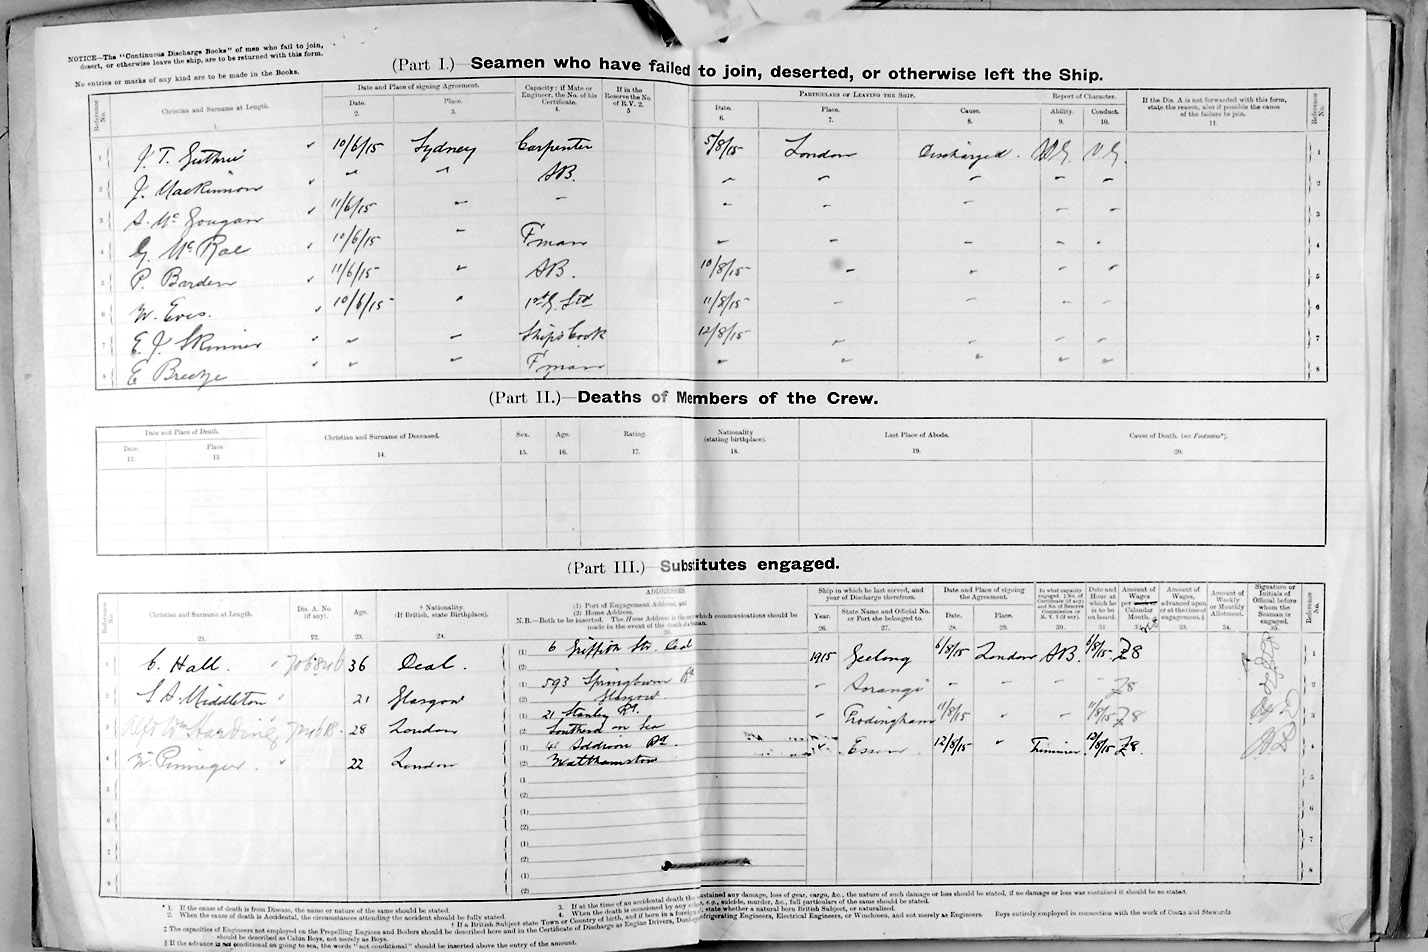 NOTICE—The "Continuous Discharge Books" of men who fail to join,
desert, or otherwise leave the ship, are to be returned with this form.
No entries or marks of any kind are to be made in the Books.
(Part I.)—Seamen who have failed to join, deserted, or otherwise left the Ship.
Reference No. Christian and Surname at Length. 1. Date and Place of signing Agreement. Date. 2. Place. 3. Capacity: if Mate or Engineer, the No. of his Certificate. 4. If in the Reserve the No. of R.V. 2. 5 Particulars of Leaving the Ship. Date. 6. Place. 7. Cause. 8. Report of Character. Ability. 9. Conduct. 10. If the Dis. A is not forwarded with this form, state the reason, also if possible the cause of the failure to join. 11. Reference No.
1 J. T. Guthrie " 10/6/15 Sydney Carpenter 5/8/15 London Discharged. V.G. V.G. 1
2 J. MacKinnon " " " AB. " " " " " 2
3 A. Mc Gougan " 11/6/15 " " " " " " " 3
4 G. McRae " 10/6/15 " Fman " " " " " 4
5 P. Barden " 11/6/15 " AB. 10/8/15 " " " " 5
6 W. Eves. " 10/6/15 " 11/8/15 " " " " 6
7 E. J. Skinner " " " Ships Cook 12/8/15 " " " " 7
8 E " " " Fman " " " " " 8
(Part II.)—Deaths of Members of the Crew.
Date and Place of Death. Date. 12. Place. 13. Christian and Surname of Deceased. 14. Sex. 15. Age. 16. Rating. 17. Nationality (stating birthplace). 18. Last Place of Abode. 19. Cause of Death. (see Footnote*). 20.
(Part III.)—Substitutes engaged.
Reference No. Christian and Surname at Length. 21. Dis. A. No. (if any). 22. Age. 23. † Nationality. (If British, state Birthplace). 24. ADDRESSES. (1) Port of Engagement Address, and (2) Home Address. N.B.—Both to be inserted. The Home Address is the one to which communications should be made in the event of the death of a man. Ship in which he last served, and year of Discharge therefrom. Year. 26. State Name and Official No. or Port she belonged to. 27. Date and Place of signing the Agreement. Date. 28. Place. 29. In what capacity engaged. 30. Date and Hour at which he is to be on board. 31 Amount of Wages per Calendar Month. Amount of Wages, advanced upon or at the time of engagement.§ 33. Amount of Weekly or Monthly Allotment. 34. Signature or Initials of Official before whom the Seaman is engaged. Reference No.
1 C. Hall. " 36 Deal. (1) 6 Griffith Str. Deal 1915 Geelong 6/8/15 London AB. 6/8/15 £8 1
2 S A Middleton " 21 Glasgow (1) 593 Springburn Rd (2) Glasgow " " " " £8 2
3 28 London (1) 21 Stanley Rd. (2) Southend on Sea " 11/8/15 " 11/8/15 £8 3
4 W. Pinneger. " 22 London (1) 4 Addison Rd. (2) Walthamstow 12/8/15 " Trimmer 12/8/15 £8. 4
5 (1) (2) 5
6 (1) (2) 6
7 (1) (2) 7
8 (1) (2) 8
* 1. If the cause of death is from Disease, the name or nature of the same should be stated.
2. When the cause of death is Accidental, the circumstances attending the accident should be fully stated.
3. If at the time of an accidental death the sustained any damage, loss of gear, cargo, &c., the nature of such damage or loss should be stated, if no damage or loss was sustained it should be so stated.
4. When the death is occasioned by any e.g., suicide, murder, &c., full particulars of the same should be stated.
† If a British Subject state Town or Country of birth, and if born in a foreign state whether a natural born British Subject, or naturalized.
‡ The capacities of Engineers not employed on the Propelling Engines and Boilers should be described here and in the Certificate of Discharge as Engine Drivers, Refrigerating Engineers, Electrical Engineers, or Winchmen, and not merely as Engineers. Boys entirely employed in connection with the work of Cooks and Stewards
should be described as Cabin Boys, not merely as Boys.
§ If the advance is not conditional on going to sea, the words "not conditional" should be inserted above the entry of the amount.